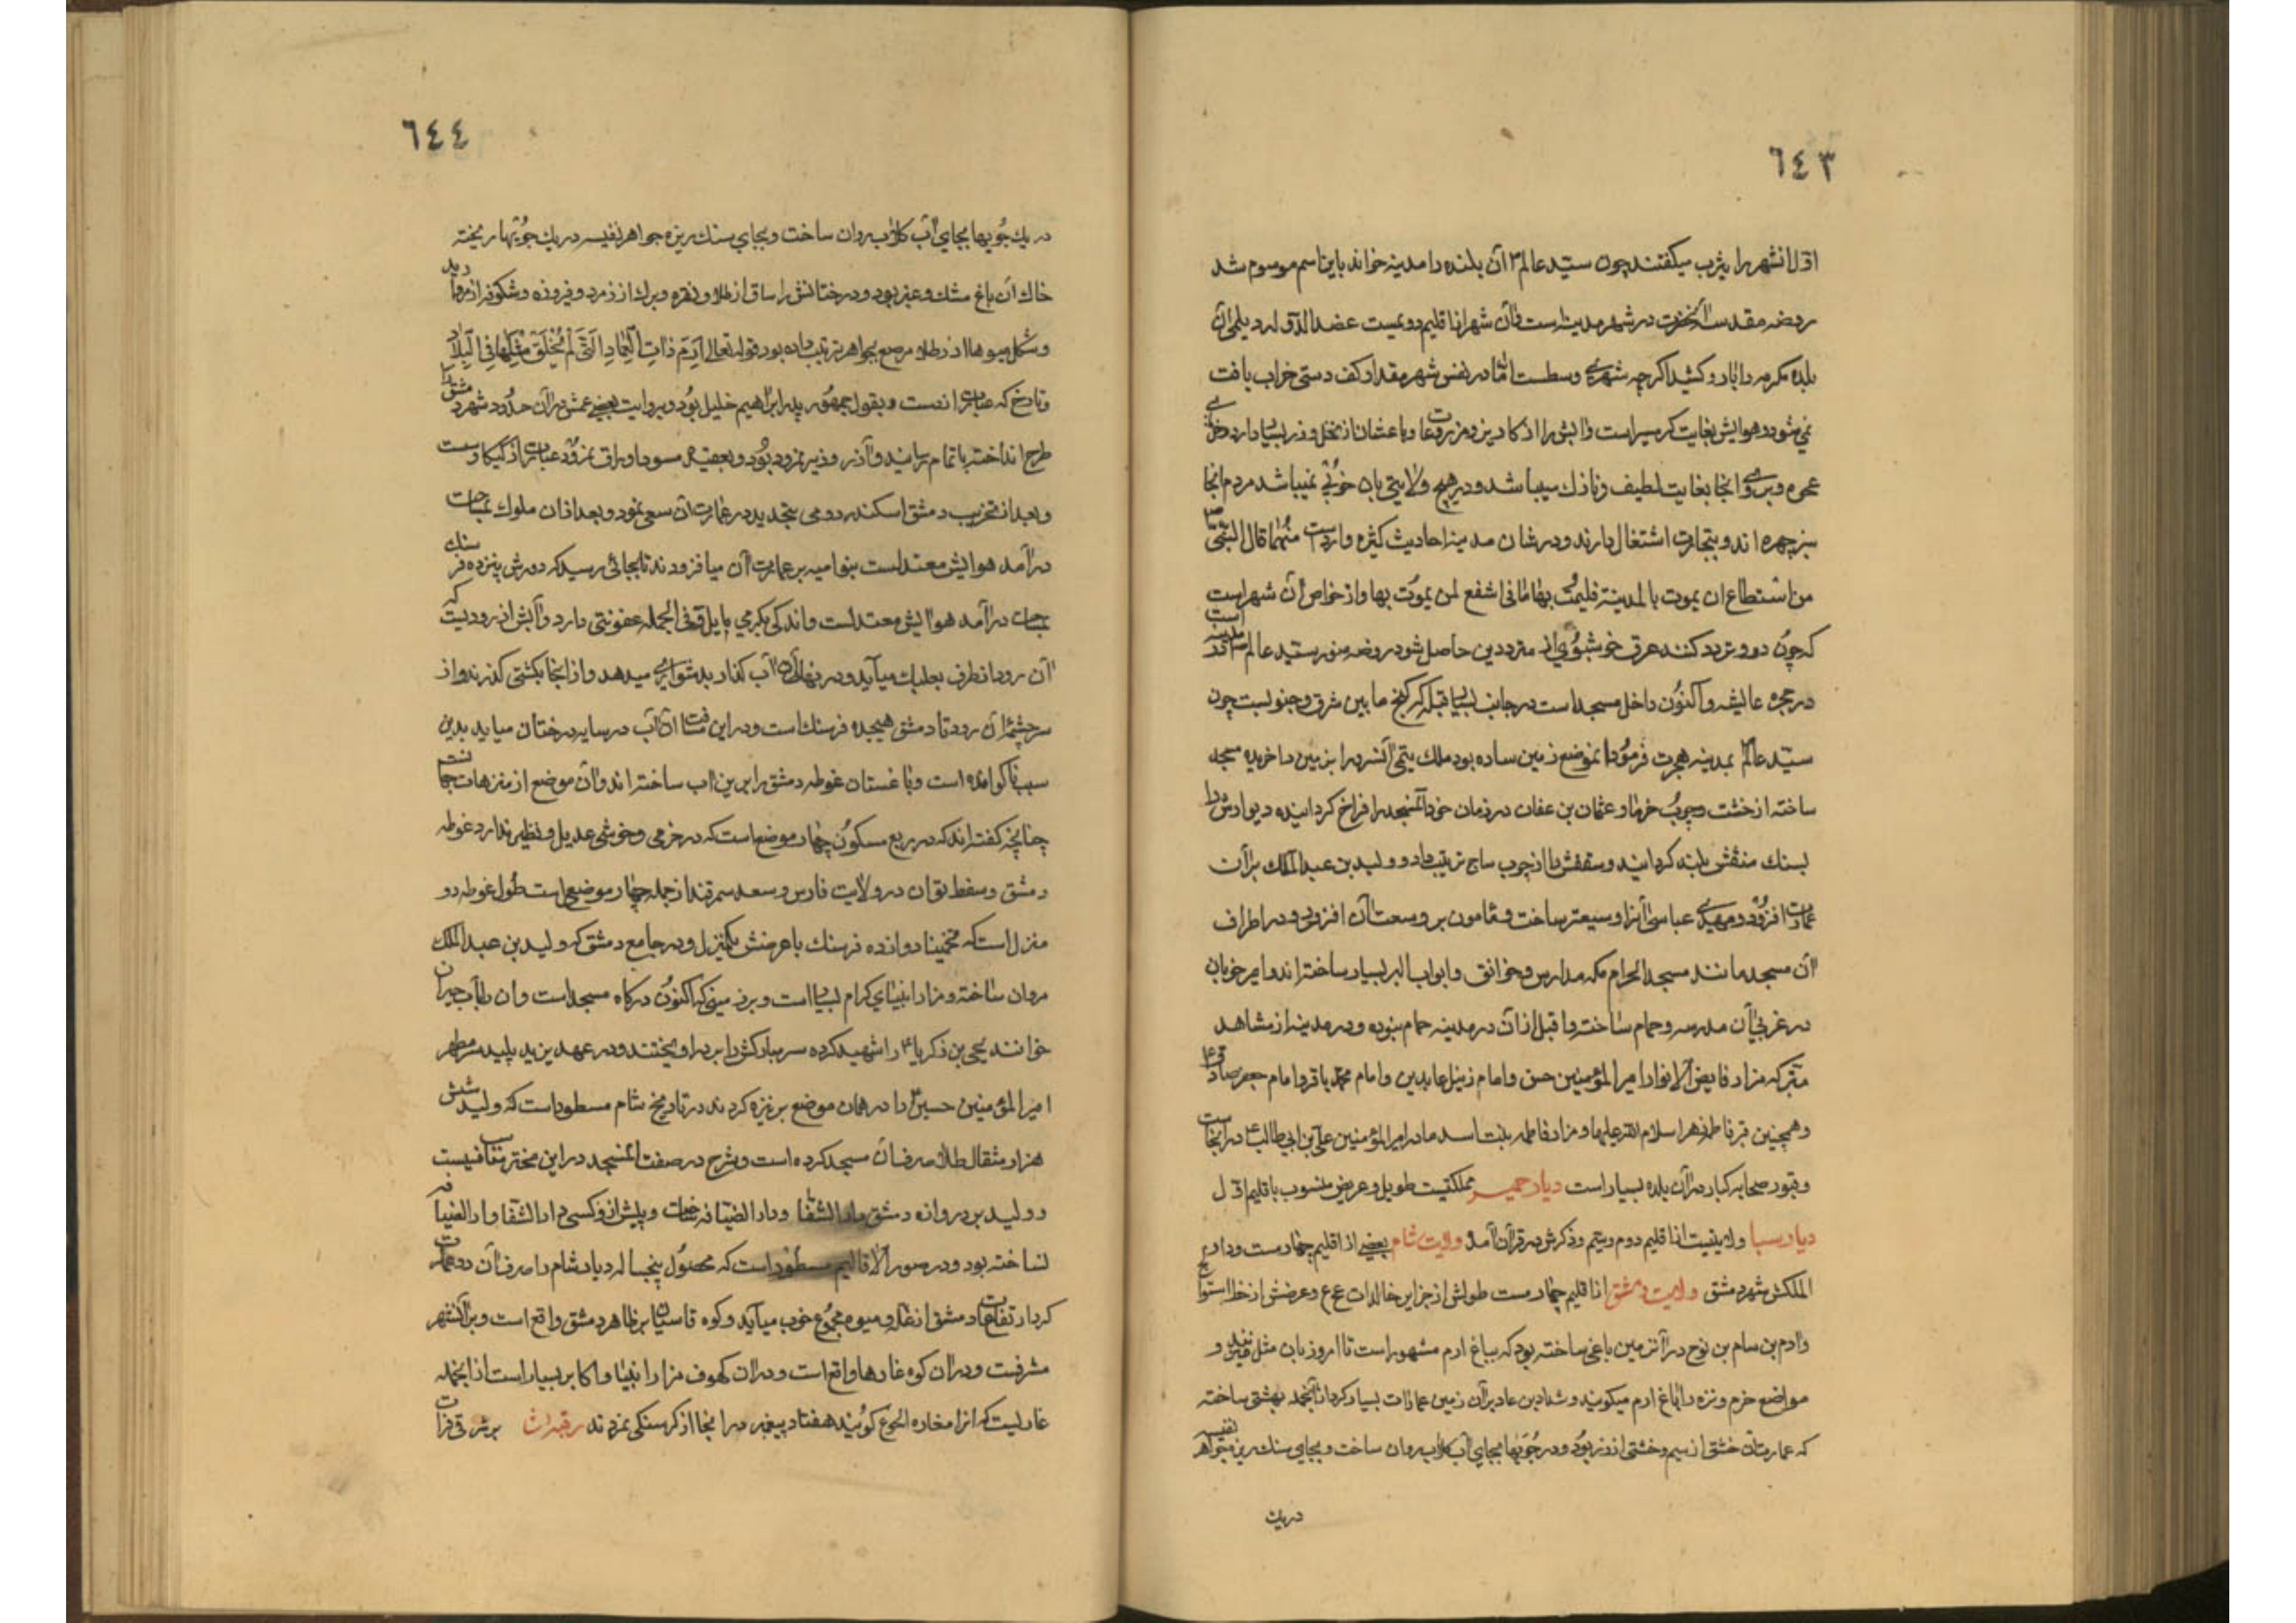 ٦٤٣
اول انشهر را یثرب میکفتند چون سید عالم آن بلده را مدینه خواند باین اسم موسوم شد
روضه مقدسه آنحضرت در شهر مدینه است و آن شهر از اقلیم دویمست عضدالدوله دیلمی آن
بلده مکرمه را کشید اکرچه شهری وسطست اما در نفس شهر مقدار کف دستی خراب یافت
نمی شود و هوایش بغایت کرمسیر است و آبش را از کاریز و مزروعات و باغستان از نخل و غیره بسیار دارد
عجوه و برنی آنجا بغایت لطیف و نازك میباشد و در هیچ ولایتی بان خوبی نمیباشد مردم آنجا
سبزچهره اند و بتجارت اشتغال دارند و در شان مدینه احادیث کثیره وارد است منها قال النبی ص
من استطاع ان یموت بالمدینة فلیمت بها فانی اشفع لمن یموت بها و از خواص آن شهر است
که چون درو تردد کنند عرق خوشبوی از مترددین حاصل شود روضه منوره سید عالم
در حجره عایشه و اکنون داخل مسجد است در جانب یسار قبله کنج مابین شرق و جنوبست چون
سید عالم بمدینه هجرت فرمود آن موضع زمین ساده بود ملك یتمی آنسرور آن زمین را خریده مسجد
ساخته از خشت و چوب خرما و عثمان بن عفان در زمان خود آنمسجد را فراخ کردانیده دیوارش را
بسنك منقش بلند کردانید و سقفش را از چوب ساج ترتیب داد و ولید بن عبدالملك بر آن
عمارت افزود و مهدی عباسی آنرا وسیعتر ساخت و مامون بر وسعت آن افزود و در اطراف
آن مسجد مانند مسجد الحرام مکه مدارس و خوانق و ابواب البر بسیار ساخته اند و امیر چوبان
در غربی آن مدرسه و حمام ساخته و ما قبل از آن در مدینه حمام نبوده و در مدینه از مشاهد
متبرکه مزار فایض الانوار امیر المؤمنین حسن و امام زین العابدین و امام محمد باقر و امام جعفر صادق ع
و همچنین قبر فاطمه زهرا سلام الله علیها و مزار فاطمه بنت اسد مادر امیر المؤمنین علی بن ابی طالب ع در آنجاست
و قبور صحابه کبار در آن بلده بسیار است دیار حمیر مملکتیست طویل و عریض منسوب باقلیم اول
دیار سبا ولایتیست از اقلیم دوم و ذکرش در قرآن آمده ولایت شام بعضی از اقلیم چهارمست و دار
الملکش شهر دمشق ولایت دمشق از اقلیم چهارمست طولش از جزایر خالدات و عرضش از خط استوا
و ارم بن سام بن نوح در آن زمین باغی ساخته بود که بباغ ارم مشهور است تا امروز بان مثل و
مواضع خرم و نزه را باغ ارم میکویند و شداد بن عاد بر آن زمین عمارات بسیار کرد از آنجمله بهشتی ساخته
که عمارتش خشتی از سیم و خشتی از زر بود و در جویها بجای آب کلاب روان ساخت و بجای سنك ریزه جواهر نفیسه
در یك
٦٤٤
در یك جویها بجای آب کلاب روان ساخت و بجای سنك ریزه جواهر نفیسه در یك جویها ریخته
خاك آن باغ مشك و عنبر بود و درختانش را ساق از طلا و نقره و برك از زمرد و فیروزه و شکوفه از مروارید
و شکل میوها از زر طلا مرصع بجواهر ترتیب داده بود قوله تعالی اِرَمَ ذاتِ العِمادِ الَّتی لَم یُخلَق مِثلُها فِی البِلادِ
و تارخ که عبارت از آذر است و بقول جمهور پدر ابراهیم خلیل بود و بروایت بعضی عمش در آن حدود شهر دمشق را
طرح انداخته باتمام رسانید و آذر وزیر نمرود بود
و بعد از تخریب دمشق اسکندر رومی بتجدید در عمارت آن سعی نمود و بعد از آن ملوك
در آمد هوایش معتدلست بنوامیه بر عمارت آن میافزودند تا بجائی رسید که دورش پانزده فرسنك
در آمد هوایش معتدلست و اندکی بکرمی مایل و فی الجمله عفونتی دارد و آبش از رودیست که
آن رود از طرف بعلبك میآید و در بهار آن آب کذار بدشواری میدهد و از آنجا بکشتی کذرند و از
سرچشمه آن رود تا دمشق هیجده فرسنك است و در این مسافت آن آب در سایه درختان میاید بدین
سبب ناکوارنده است و باغستان غوطه دمشق را برین آب ساخته اند و آن موضع از منزهات جهانست
چنانچه کفته اند که در ربع مسکون چهار موضع است که در خرمی و خوشی عدیل و نظیر ندارد غوطه
دمشق و در ولایت فارس و سعد سمرقند از جمله چهار موضع است طول غوطه دو
منزل است که تخمینا دوازده فرسنك باعرضش یکمنزل و در جامع دمشق که ولید بن عبدالملك
مروان ساخته و مزار انبیای کرام بسیار است و بر زمینی که اکنون درکاه مسجد است و آن را باب جیرون
خوانند یحیی بن زکریا ع را شهید کرده سر مبارکش را بر در آویختند و در عهد یزید پلید سر مطهر
امیر المؤمنین حسین را در همان موضع بر نیزه کردند در تاریخ شام مسطور است که ولید شش
هزار مثقال طلا صرف آن مسجد کرده است و شرح در صفت آنمسجد در این مختصر مناسب نیست
و ولید بر دروازه دمشق دار الشفا و دار الضیافه ساخت و پیش از او کسی دار الشفا و دار الضیافه
نساخته بود و در صور الاقالیم مسطور است که محصول پنجساله دیار شام را صرف آن دو عمارت
کرد ارتفاعات دمشق از غله و میوه مجموع خوب میآید و کوه قاسیان بر ظاهر دمشق واقع است و بر آنشهر
مشرفست و در آن کوه غارها واقع است و در آن کهوف مزار انبیا و اکابر بسیار است از انجمله
غاریست که آنرا مغاره الجوع کویند هفتاد پیغمبر در آنجا از کرسنکی مردند رقبه بر شرقی فرات